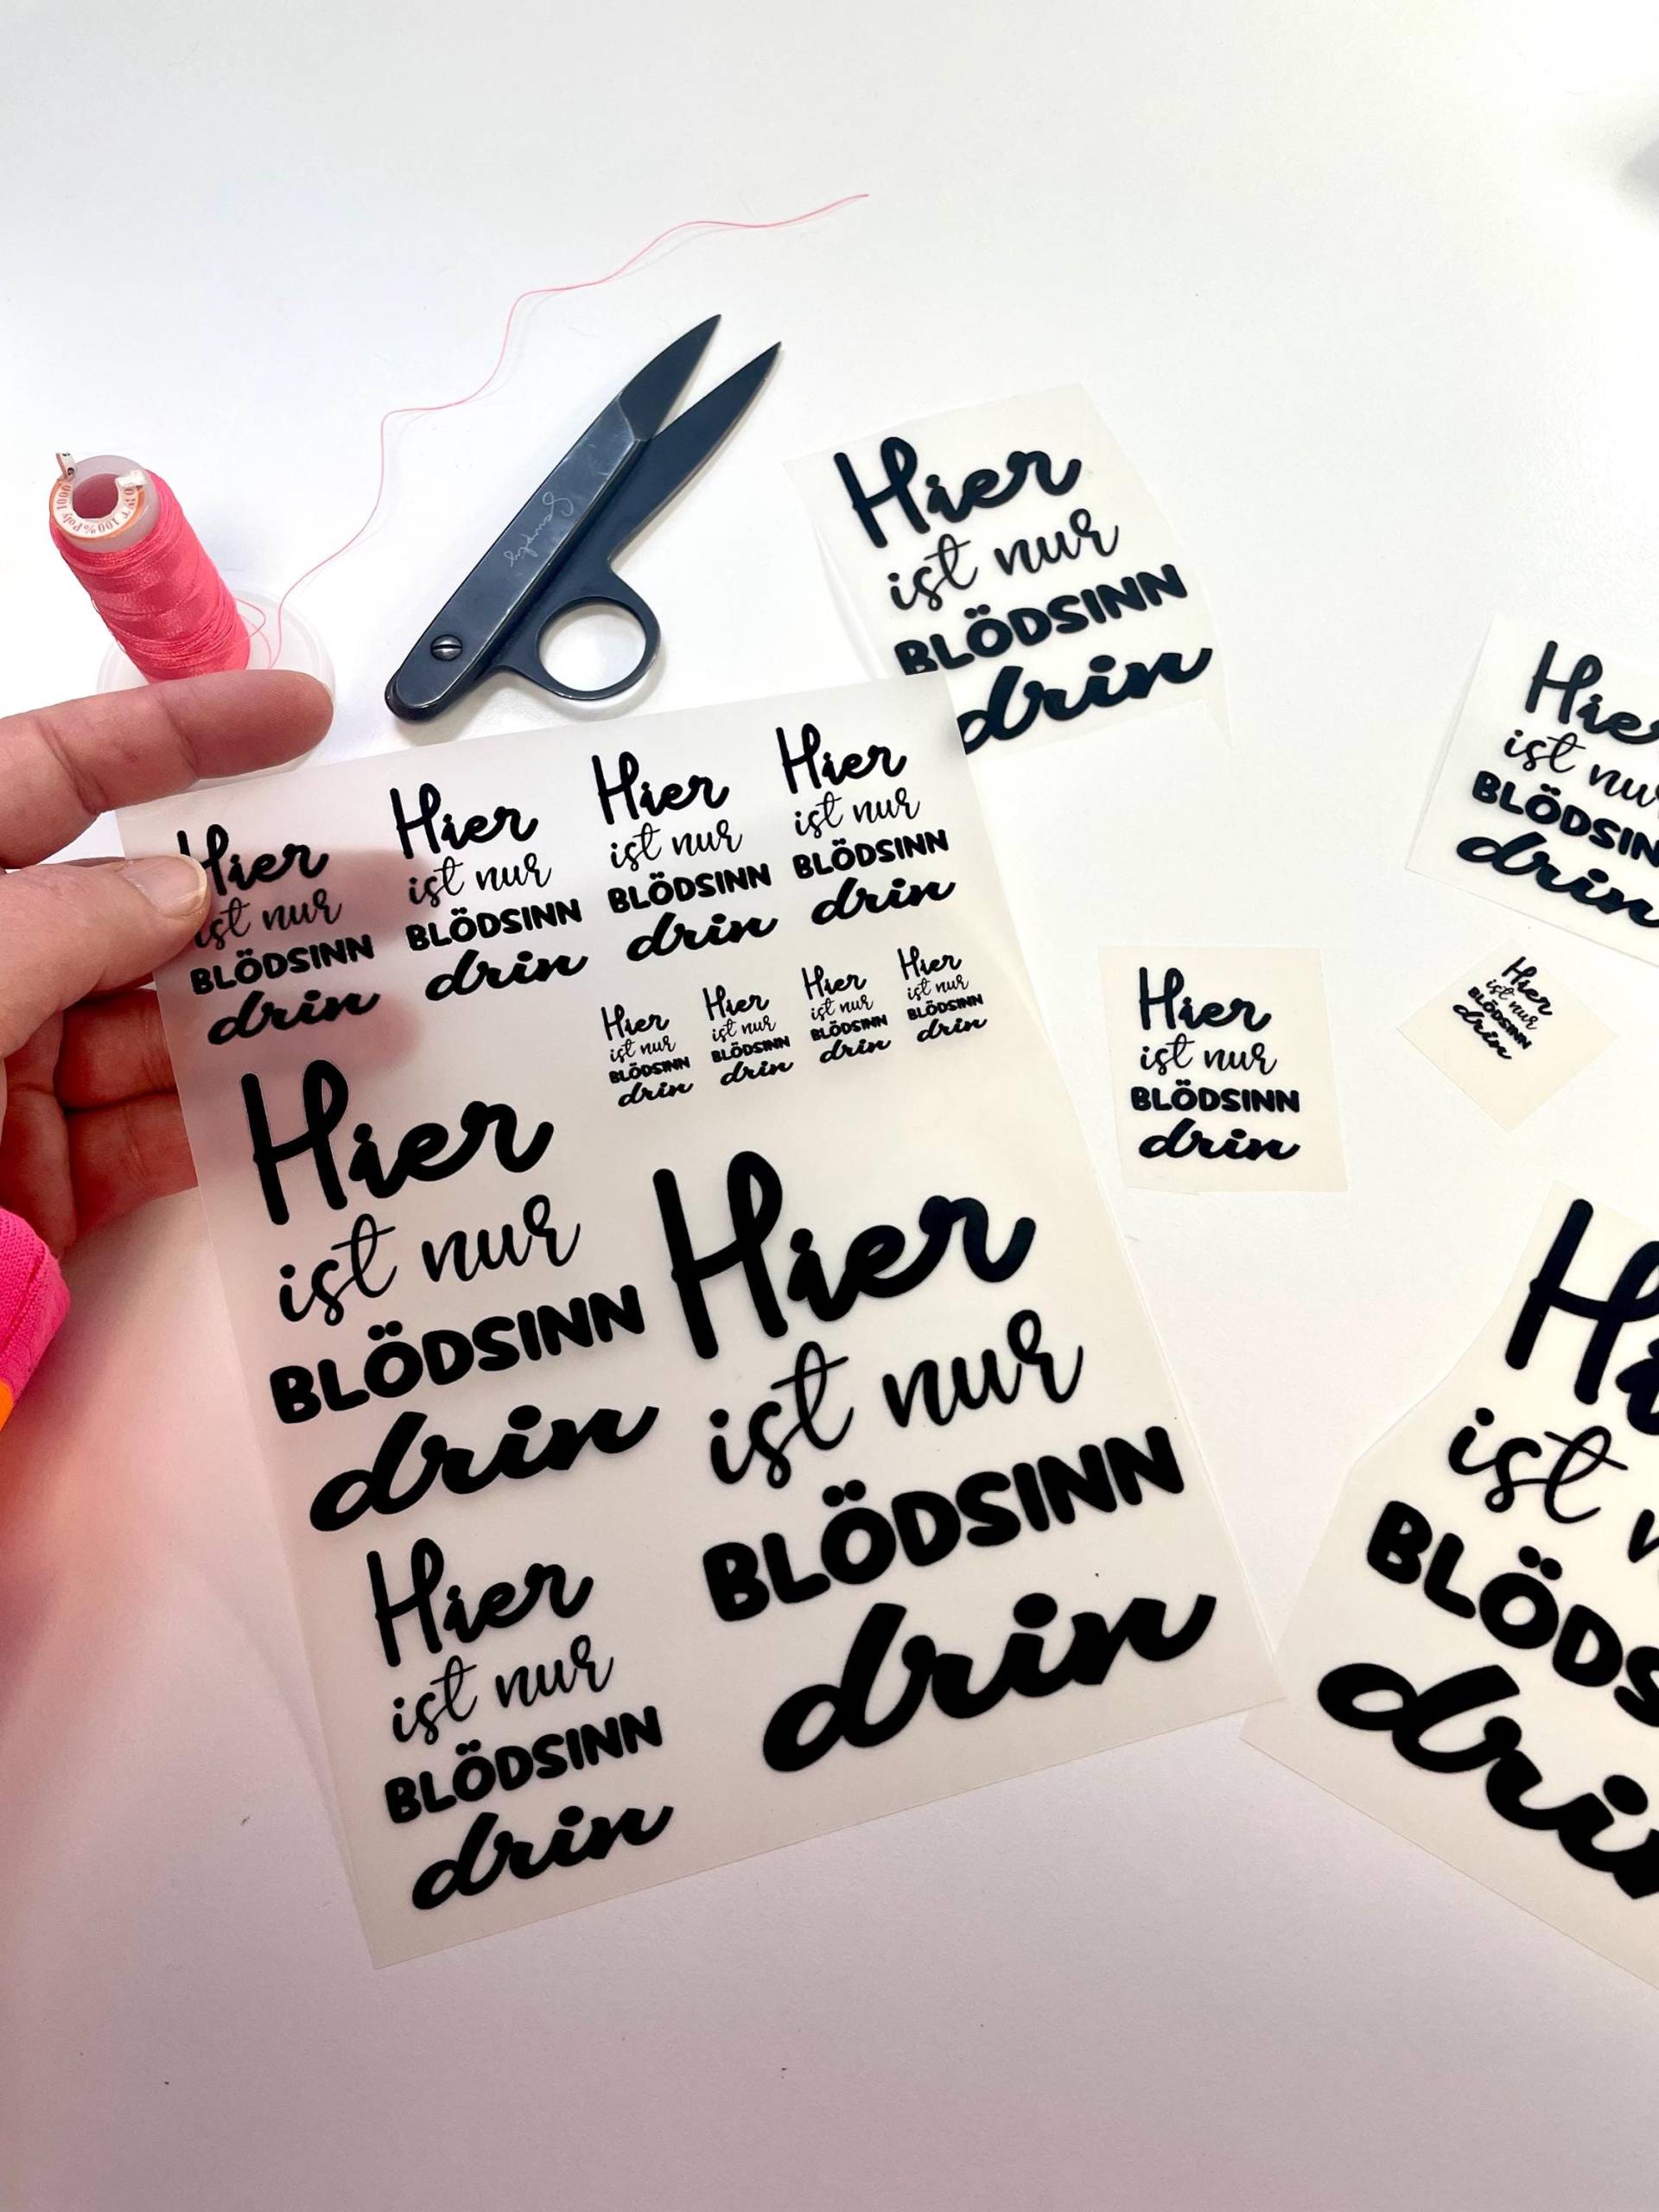 1000
100% Poly
Hier
ist nur
BLÖDSINN
drin
Hier
ist nur
BLÖDSINN
drin
Hier
ist nur
BLÖDSINN
drin
Hier
ist nur
BLÖDSINN
drin
Hier
ist nur
BLÖDSINN
drin
Hier
ist nur
BLÖDSINN
drin
Hier
ist nur
BLÖDSINN
drin
Hier
ist nur
BLÖDSINN
drin
Hier
ist nur
BLÖDSINN
drin
Hier
ist nur
BLÖDSINN
drin
Hier
ist nur
BLÖDSINN
drin
Hier
ist nur
BLÖDSINN
drin
Hier
ist nur
BLÖDSIN
drin
Hier
ist nur
BLÖDSINN
drin
Hier
ist nur
BLÖDSINN
drin
Hi
ist
BLÖDS
dri